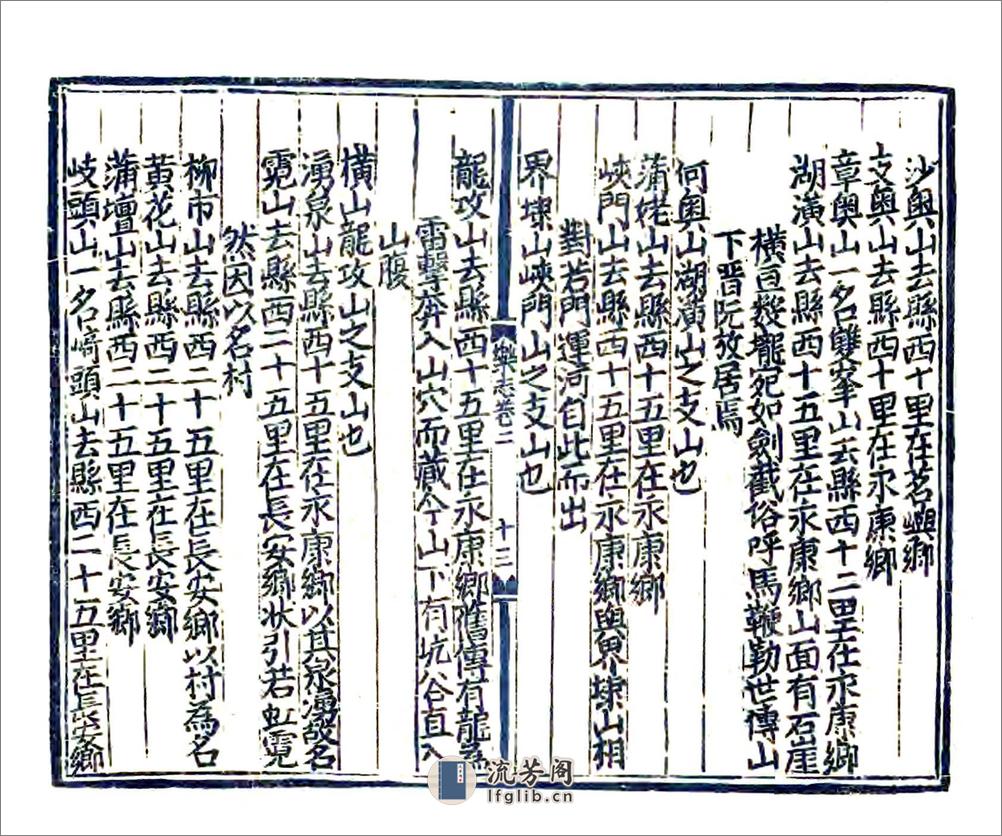 沙奧山去縣西十里在茗嶼鄉
支奧山去縣西十里在永康鄉
章奧山一名雙峯山去縣西十二里在永康鄉
湖潢山去縣西十五里在永康鄉山面有石崖
橫亘幾壠宛如劍截俗呼馬鞭勒世傳山
下晋阮放居焉
何奧山湖潢山之支山也
蒲姥山去縣西十五里在永康鄉
峽門山去縣西十五里在永康鄉與界埭山相
對若門運河自此而出
界埭山峽門山之支山也
樂志卷二
十三
龍攻山去縣西十五里在永康鄉舊傳有龍爲
雷擊奔入山穴而藏今山上有坑谷直入
山腹
橫山龍攻山之支山也
湧泉山去縣西十五里在永康鄉以其泉湧故名
霓山去縣西二十五里在長安鄉狀引若虹霓
然因以名村
柳市山去縣西二十五里在長安鄉以村爲名
黄花山去縣西二十五里在長安鄉
蒲壇山去縣西二十五里在長安鄉
岐頭山一名﨑頭山去縣西二十五里在長安鄉
流芳阁
lfglib.cn